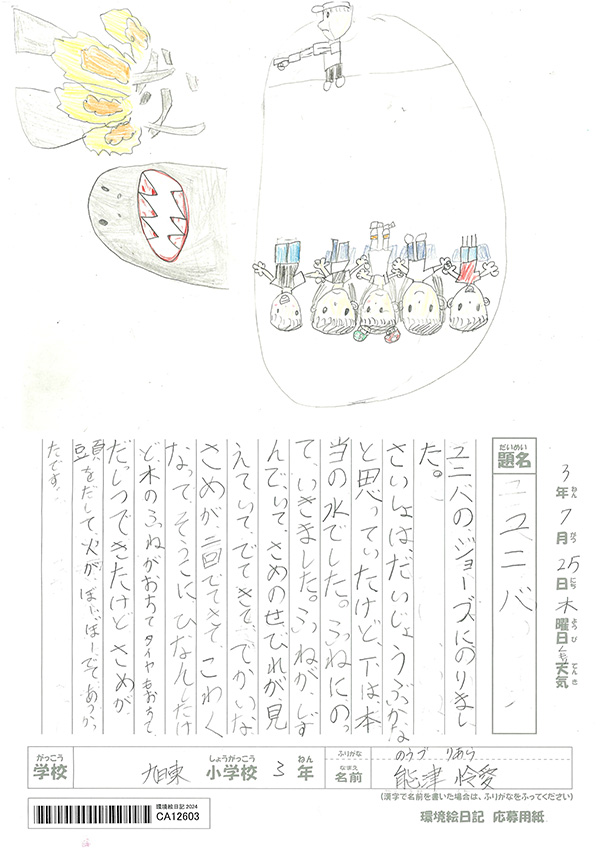 3年7月25日木曜日 天気
ねん がつ にち ようび てんき
だいめい
題名 ユニバ
ユニバのジョーズにのりまし
た。
さいしょは、だいじょうぶかな
と思っていたけど、下は本
当の水でした。ふねにのっ
て、いきました。ふねが、しず
んで、いて、さめのせびれが、見
えていて、でてきて、でかいな
さめが、二回でてきて、こわく
なって、そうこに、ひなんしたけ
ど木のふねがおちてタイヤもおちて、
だっしつできたけどさめが、
頭をだして火が、ぼーぼーでてあつかっ
たです。
がっこう しょうがっこう ねん ふりがな のうづ りあら
学校 旭東 小学校 3年 なまえ 名前 能津 怜愛
(漢字で名前を書いた場合は、ふりがなをふってください)
環境絵日記 応募用紙
環境絵日記2024
CA12603